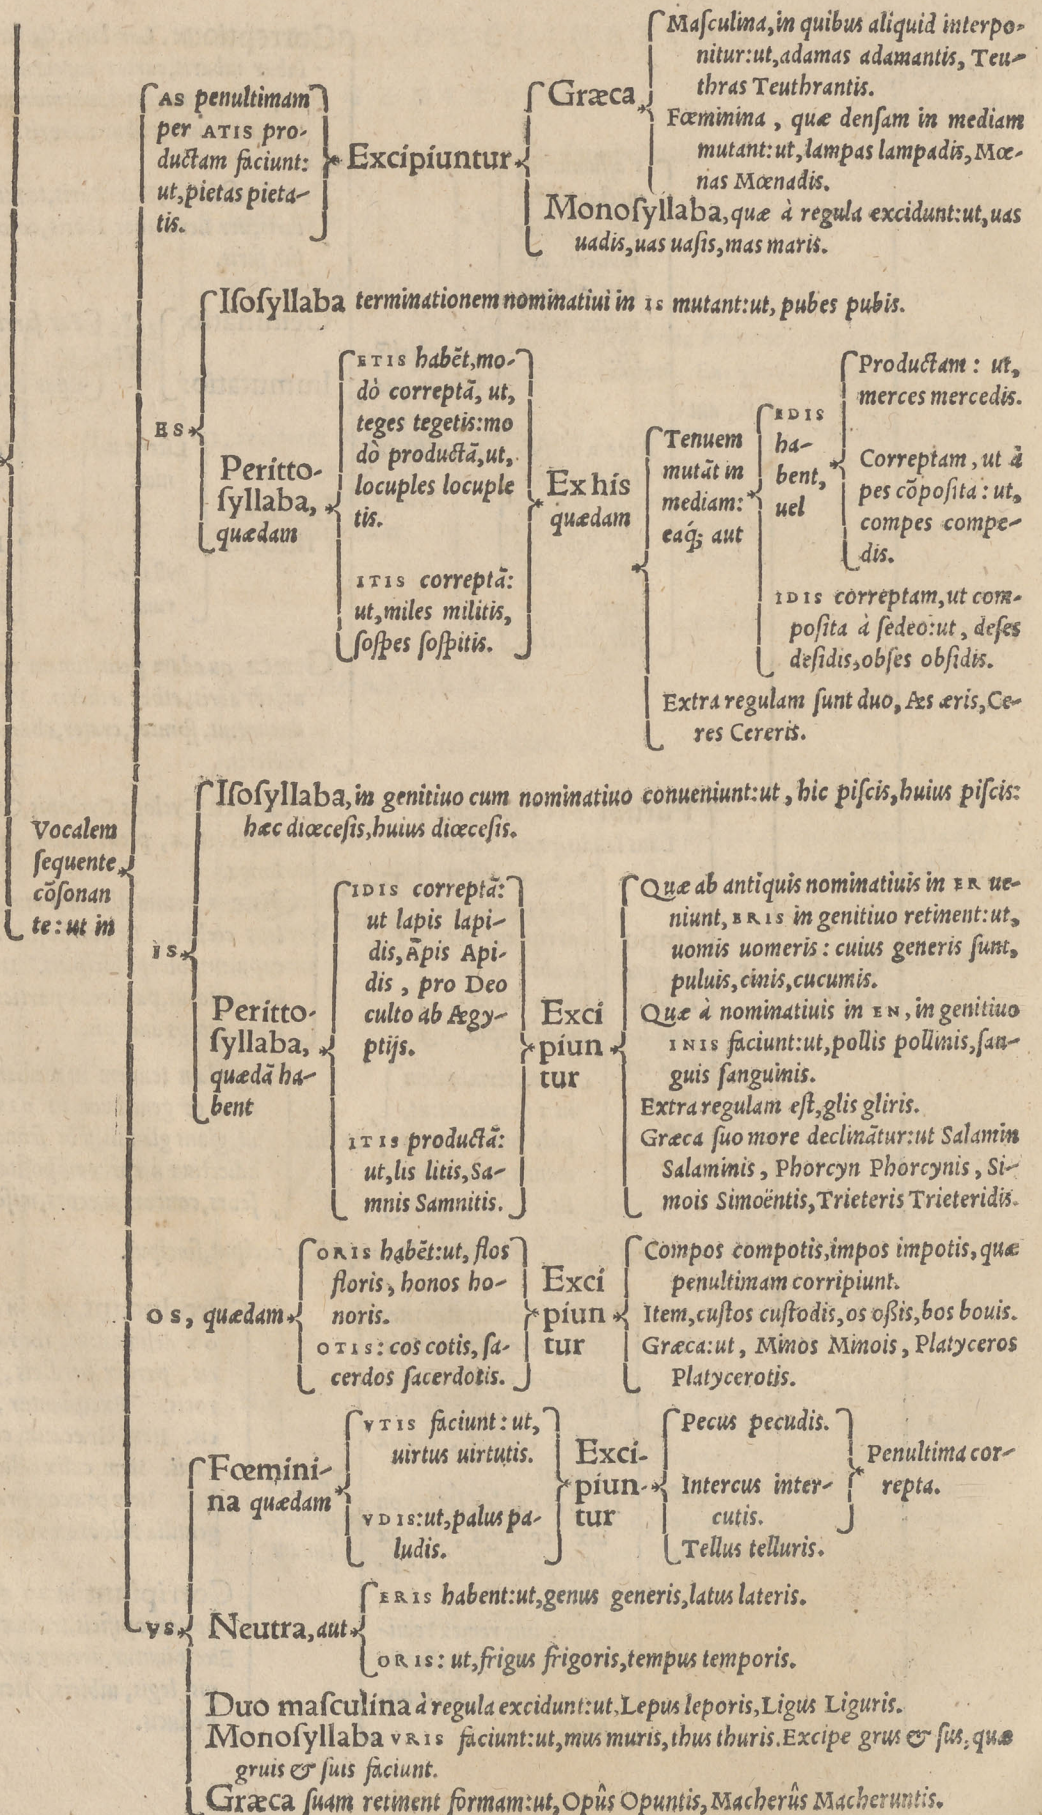 Vocalem
ſequente
cõſonan
te: ut in
AS penultimam
per ATIS pro-
ductam faciunt:
ut, pietas pieta-
tis.
Excipiuntur
Græca
Maſculina, in quibus aliquid interpo-
nitur: ut, adamas adamantis, Teu-
thras Teuthrantis.
Fœminina, quæ denſam in mediam
mutant: ut, lampas lampadis, Mœ-
nas Mœnadis.
Monoſyllaba, quæ à regula excidunt: ut, uas
uadis, uas uaſis, mas maris.
ES
Iſoſyllaba terminationem nominatiui in IS mutant: ut, pubes pubis.
Peritto-
ſyllaba,
quædam
ETIS habẽt, mo-
dò correptã, ut,
teges tegetis: mo
dò productã, ut,
locuples locuple
tis.
ITIS correptã:
ut, miles militis,
ſoſpes ſoſpitis.
Ex his
quædam
Tenuem
mutãt in
mediam:
eáq; aut
EDIS
ha-
bent,
uel
Productam: ut,
merces mercedis.
Correptam, ut à
pes cõpoſita: ut,
compes compe-
dis.
IDIS correptam, ut com-
poſita à ſedeo: ut, deſes
deſidis, obſes obſidis.
Extra regulam ſunt duo, Æs æris, Ce-
res Cereris.
IS
Iſoſyllaba, in genitiuo cum nominatiuo conueniunt: ut, hic piſcis, huius piſcis:
hæc diœceſis, huius diœceſis.
Peritto-
ſyllaba,
quædã ha-
bent
IDIS correptã:
ut lapis lapi-
dis, Āpis Api-
dis, pro Deo
culto ab Ægy-
ptijs.
ITIS productã:
ut, lis litis, Sa-
mnis Samnitis.
Exci
piun
tur
Quæ ab antiquis nominatiuis in ER ue-
niunt, ERIS in genitiuo retinent: ut,
uomis uomeris: cuius generis ſunt,
puluis, cinis, cucumis.
Quæ à nominatiuis in EN, in genitiuo
INIS faciunt: ut, pollis pollinis, ſan-
guis ſanguinis.
Extra regulam eſt, glis gliris.
Græca ſuo more declinãtur: ut Salamin
Salaminis, Phorcyn Phorcynis, Si-
mois Simoëntis, Trieteris Trieteridis.
OS, quædam
ORIS habẽt: ut, flos
floris, honos ho-
noris.
OTIS: cos cotis, ſa-
cerdos ſacerdotis.
Exci
piun
tur
Compos compotis, impos impotis, quæ
penultimam corripiunt.
Item, cuſtos cuſtodis, os oßis, bos bouis.
Græca: ut, Minos Minois, Platyceros
Platycerotis.
VS
Fœmini-
na quædam
VTIS faciunt: ut,
uirtus uirtutis.
VDIS: ut, palus pa-
ludis.
Exci-
piun-
tur
Pecus pecudis.
Intercus inter-
cutis.
Tellus telluris.
Penultima cor-
repta.
Neutra, aut
ERIS habent: ut, genus generis, latus lateris.
ORIS: ut, frigus frigoris, tempus temporis.
Duo maſculina à regula excidunt: ut, Lepus leporis, Ligus Liguris.
Monoſyllaba VRIS faciunt: ut, mus muris, thus thuris. Excipe grus & ſus, quæ
gruis & ſuis faciunt.
Græca ſuam retinent formam: ut, Opûs Opuntis, Macherûs Macheruntis.